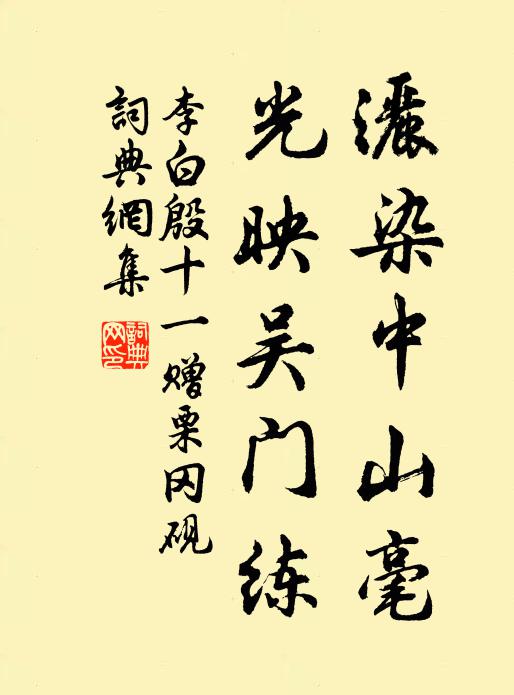 灑染中山毫
光映吴门练
李白殷十一赠栗冈砚
詞典網集
詞典
网印